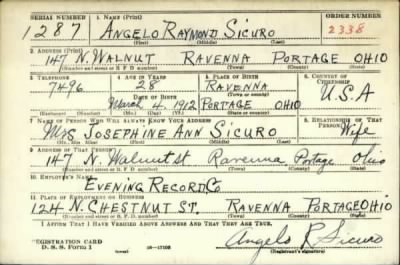 SERIAL NUMBER 1. NAME (Print) ORDER NUMBER
1287 ANGELO RAYMOND SICURO 2338
(First) (Middle) (Last)
2. ADDRESS (Print)
147 N. WALNUT RAVENNA PORTAGE OHIO
(Number and street or R. F. D. number) (Town) (County) (State)
3. TELEPHONE 4. AGE IN YEARS 5. PLACE OF BIRTH 6. COUNTRY OF CITIZENSHIP
7496 28 RAVENNA U.S.A
DATE OF BIRTH (Town or county)
March 4, 1912 PORTAGE OHIO
(Exchange) (Number) (Mo.) (Day) (Yr.) (State or country)
7. NAME OF PERSON WHO WILL ALWAYS KNOW YOUR ADDRESS RELATIONSHIP OF THAT PERSON
Mrs JOSEPHINE ANN SICURO Wife
(Mr., Mrs., Miss) (First) (Middle) (Last)
8. ADDRESS OF THAT PERSON
147 N. Walnut st Ravenna Portage Ohio
(Number and street or R. F. D. number) (Town) (County) (State)
10. EMPLOYER'S NAME
EVENING RECORD CO
11. PLACE OF EMPLOYMENT OR BUSINESS
124 N. CHESTNUT ST. RAVENNA PORTAGE OHIO
(Number and street or R. F. D. number) (Town) (County) (State)
I AFFIRM THAT I HAVE VERIFIED ABOVE ANSWERS AND THAT THEY ARE TRUE.
REGISTRATION CARD
D. S. S. Form 1 16-17105 Angelo R Sicuro
(Registrant's signature)